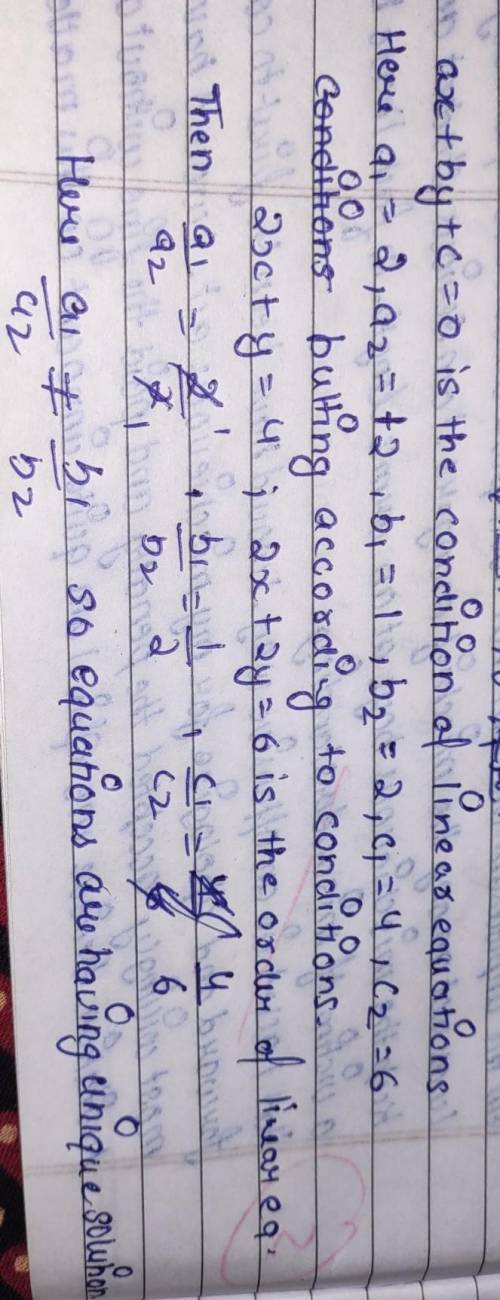 ax + by + c = 0 is the condition of linear equations
Here a1 = 2, a2 = +2, b1 = 1, b2 = 2, c1 = 4, c2 = 6
conditions butting according to conditions.
2x + y = 4 ; 2x + 2y = 6 is the order of linear eq.
Then a1/a2 = 2/2 1/1, b1/b2 = 1/2, c1/c2 = 4/6
Here a1/a2 ≠ b1/b2 so equations are having unique solution